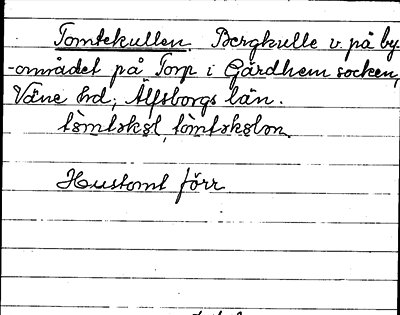 Tomtekullen. Bergkulle v. på by-
-området på Torp i Gärdhem socken,
Väne hd, Älfsborgs län.
Hustomt förr